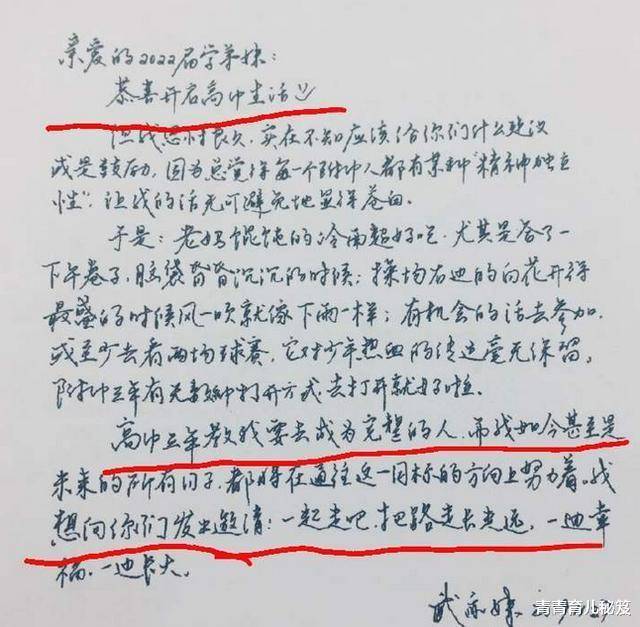 亲爱的2022届学弟妹：
恭喜开启高中生活
但我思忖良久，实在不知应该给你们什么建议
或是鼓励，因为总觉得每一个附中人都有某种“精神独立
性”，让我的话无可避免地显得苍白。
于是：老妈馄饨的冷面超好吃，尤其是答了一
下午卷子，脑袋昏昏沉沉的时候；操场右边的白花开得
最盛的时候风一吹就像下雨一样；有机会的话去参加，
或至少去看两场球赛，它对少年热血的传达毫无保留。
附中三年有无数种打开方式，去打开就好啦。
高中三年教我要去成为完整的人，而我如今甚至是
未来的所有日子，都将在通往这一目标的方向上努力着。我
想向你们发出邀请：一起走吧，把路走长走远，一边幸
福，一边长大。
武亦姝
青青育儿秘笈